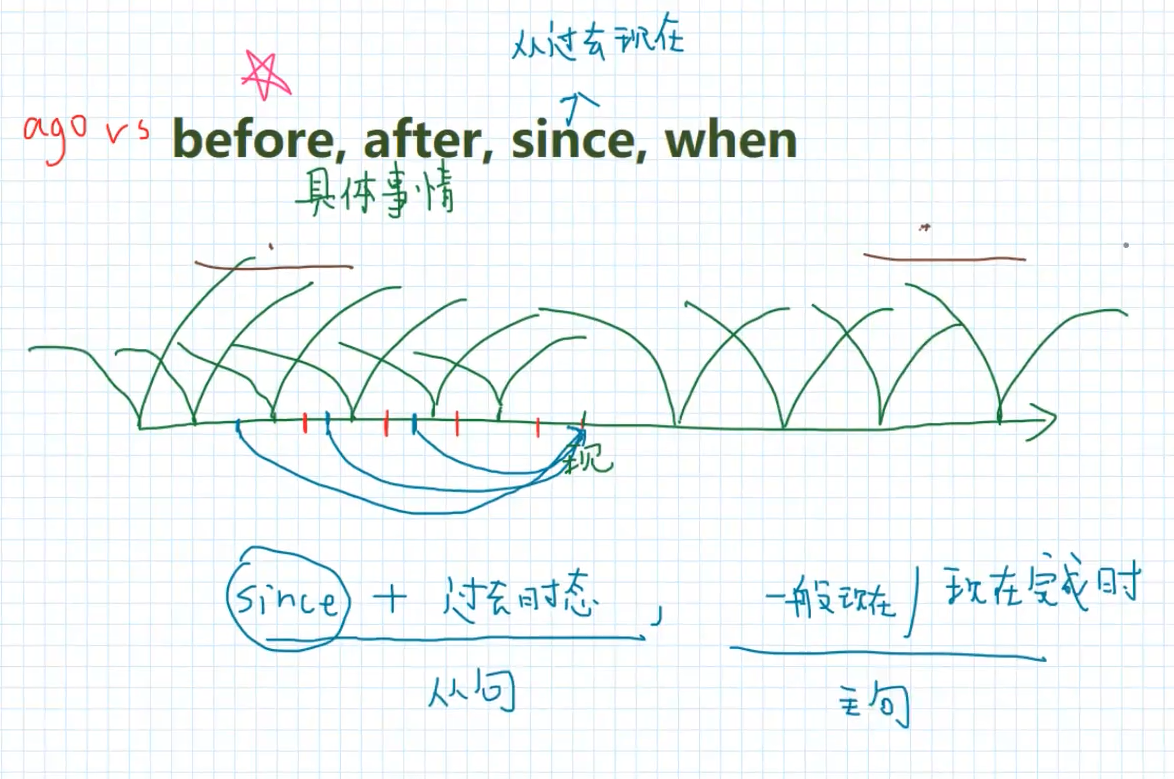 从过去现在
ago vs before, after, since, when
具体事情
现
since + 过去时态, 一般现在/现在完成时
从句 主句